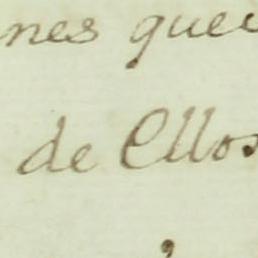 nes que
de Ellos